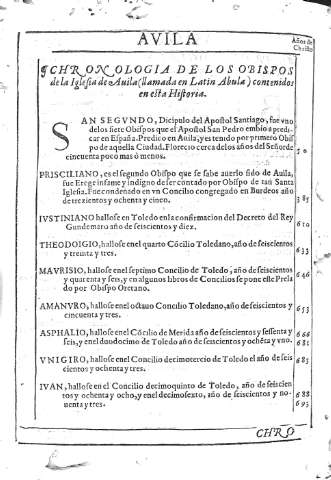 AVILA
Años de
Christo
¶ CHRONOLOGIA DE LOS OBISPOS
de la Iglesia de Auila (llamada en Latin Abula) contenidos
en esta Historia.
SAN SEGVNDO, Dicipulo del Apostol Santiago, fue vno
delos siete Obispos que el Apostol San Pedro embio a predi-
car en España. Predico en Auila, y es tenido por primero Obis
po de aquella Ciudad. Florecio cerca delos años del Señor de
cincuenta poco mas ò menos.
50
PRISCILIANO, es el segundo Obispo que se sabe auerlo sido de Auila,
fue Erege infame y indigno de ser contado por Obispo de tan Santa
Iglesa. Fue condenado en vn Concilio congregado en Burdeos año
de trezientos y ochenta y cinco.
385
IVSTINIANO hallose en Toledo en la confirmacion del Decreto del Rey
Gundemaro año de seiscientos y diez.
610
THEODOIGIO, hallose en el quarto Cōcilio Toledano, año de seiscientos
y treinta y tres.
633
MAVRISIO, hallose en el septimo Concilio de Toledo, año de seiscientos
y quarenta y seis, y en algunos libros de Concilios se pone este Prela
do por Obispo Oretano.
646
AMANVRO, hallose en el octauo Concilio Toledano, año de seiscientos y
cincuenta y tres.
653
ASPHALIO, hallose en el Cōcilio de Merida año de seiscientos y sessenta y
seis, y en el duodecimo de Toledo año de seiscientos y ochēta y vno.
666
681
VNIGIRO, hallose en el Concilio decimotercio de Toledo el año de seis
cientos y ochenta y tres.
683
IVAN, hallose en el Concilio decimoquinto de Toledo, año de seiscien
tos y ochenta y ocho, y en el decimosexto, año de seiscientos y no-
uenta y tres.
688
693
CHRO